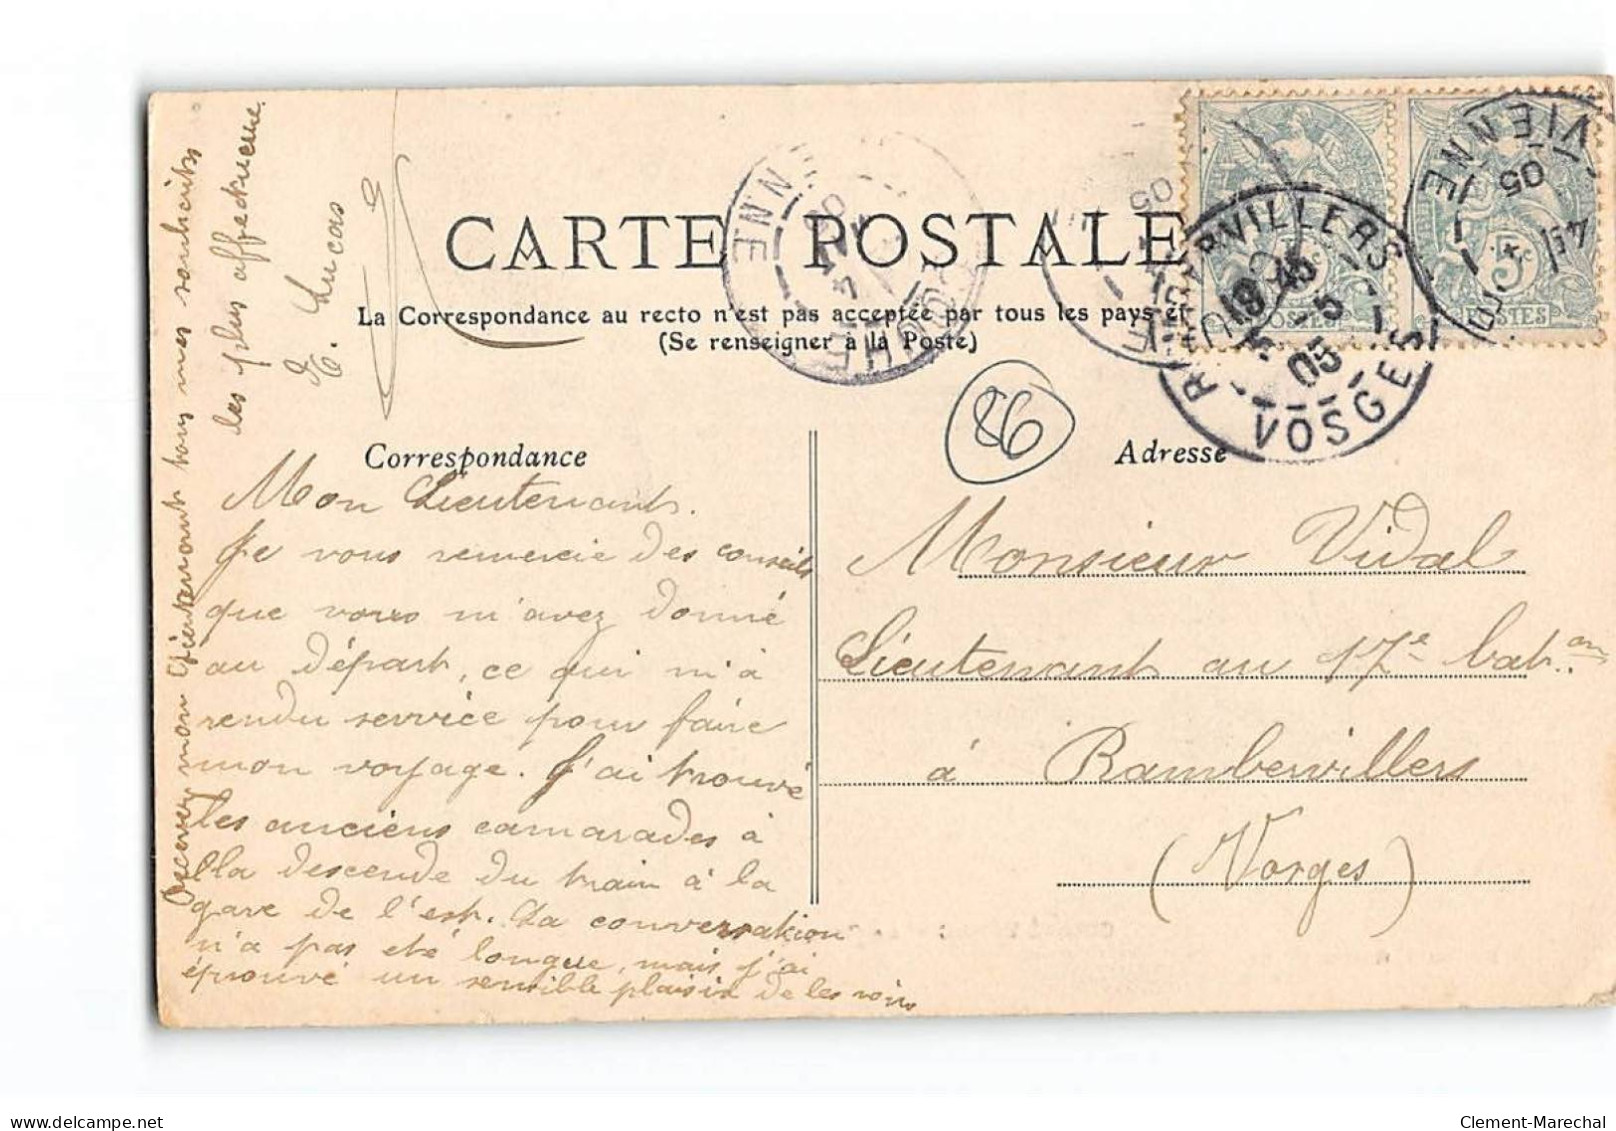 CARTE POSTALE
La Correspondance au recto n'est pas acceptée par tous les pays et
(Se renseigner à la Poste)
Correspondance
Adresse
86
Mon Lieutenant.
Je vous remercie des conseils
que vous m'avez donné
au départ, ce qui m'a
rendu service pour faire
mon voyage. J'ai trouvé
les anciens camarades à
lla descende du train à la
gare de l'est. La conversation
n'a pas été longue, mais j'ai
éprouvé un sensible plaisir de les voir
Recever mon Lieutenant tous mes souhaits
les plus affectueux
E. Lucas
Monsieur Vidal
Lieutenant au 17e bat.on
à Rambervillers
(Vosges)
RAMBERVILLERS
18 45
5 - 5
05
VOSGES
VIENNE
05
5c
POSTES
5c
POSTES
VIENNE
05
Clement-Marechal